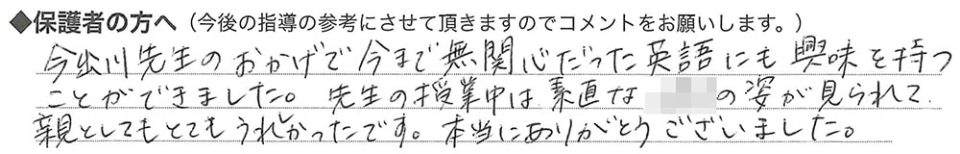 ◆保護者の方へ（今後の指導の参考にさせて頂きますのでコメントをお願いします。）
今出川先生のおかげで今まで無関心だった英語にも興味を持つ
ことができました。先生の授業中は素直な の姿が見られて、
親としてもとてもうれしかったです。本当にありがとうございました。